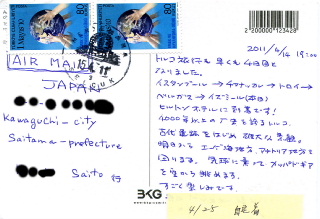 2 200000 123428
80
80
AIR MAIL
JAPAN
Kawaguchi-city
Saitama-prefecture
Saito 行
2011/4/14 19:00
トルコ旅行も早くも4日目と
なりました。
イスタンブール→チャナッカレ→トロイ→
ベルガマ→イズミール(本日)
ヒルトンホテルに到着です!
4000年以上の
古代遺跡をはじめ雄大な景観。
明日からエーゲ海地方、アナトリア地方を
回ります。気球に乗ってカッパドギア
を空から眺めます。
すごく楽しみです。
BKG
4/25